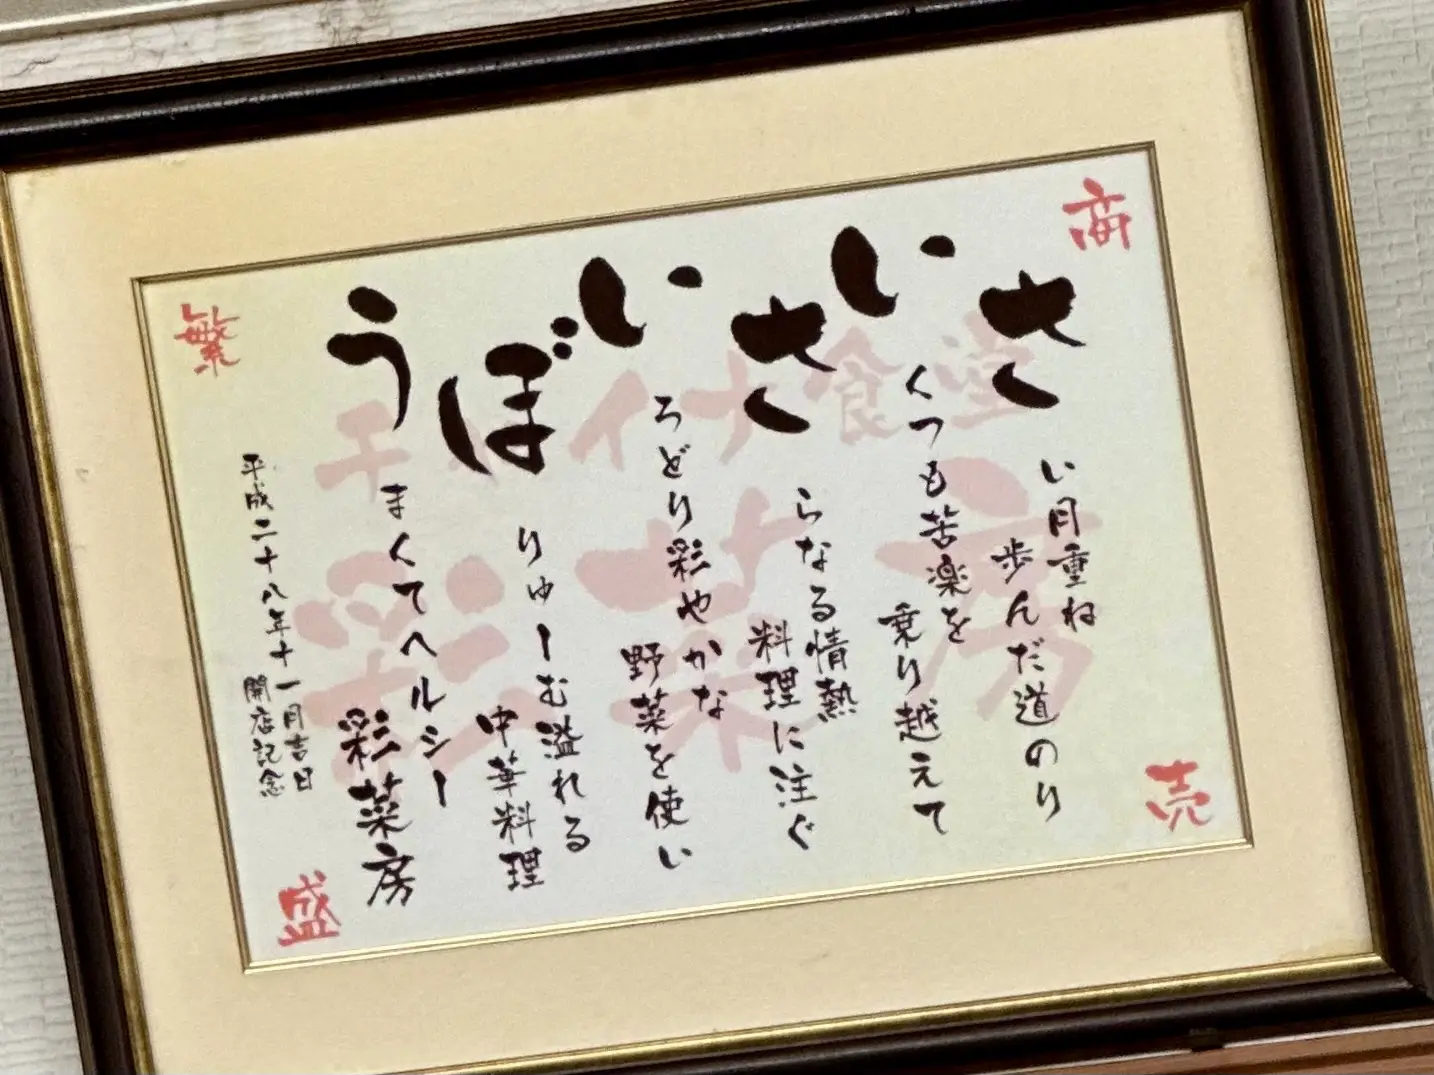 商売繁盛
さい月重ね
歩んだ道のり
いくつも苦楽を
乗り越えて
さらなる情熱
料理に注ぐ
いろどり彩やかな
野菜を使い
ぼりゅーむ溢れる
中華料理
うまくてヘルシー
彩菜房
平成二十八年十一月吉日
開店記念
チャイナ食堂
彩菜房